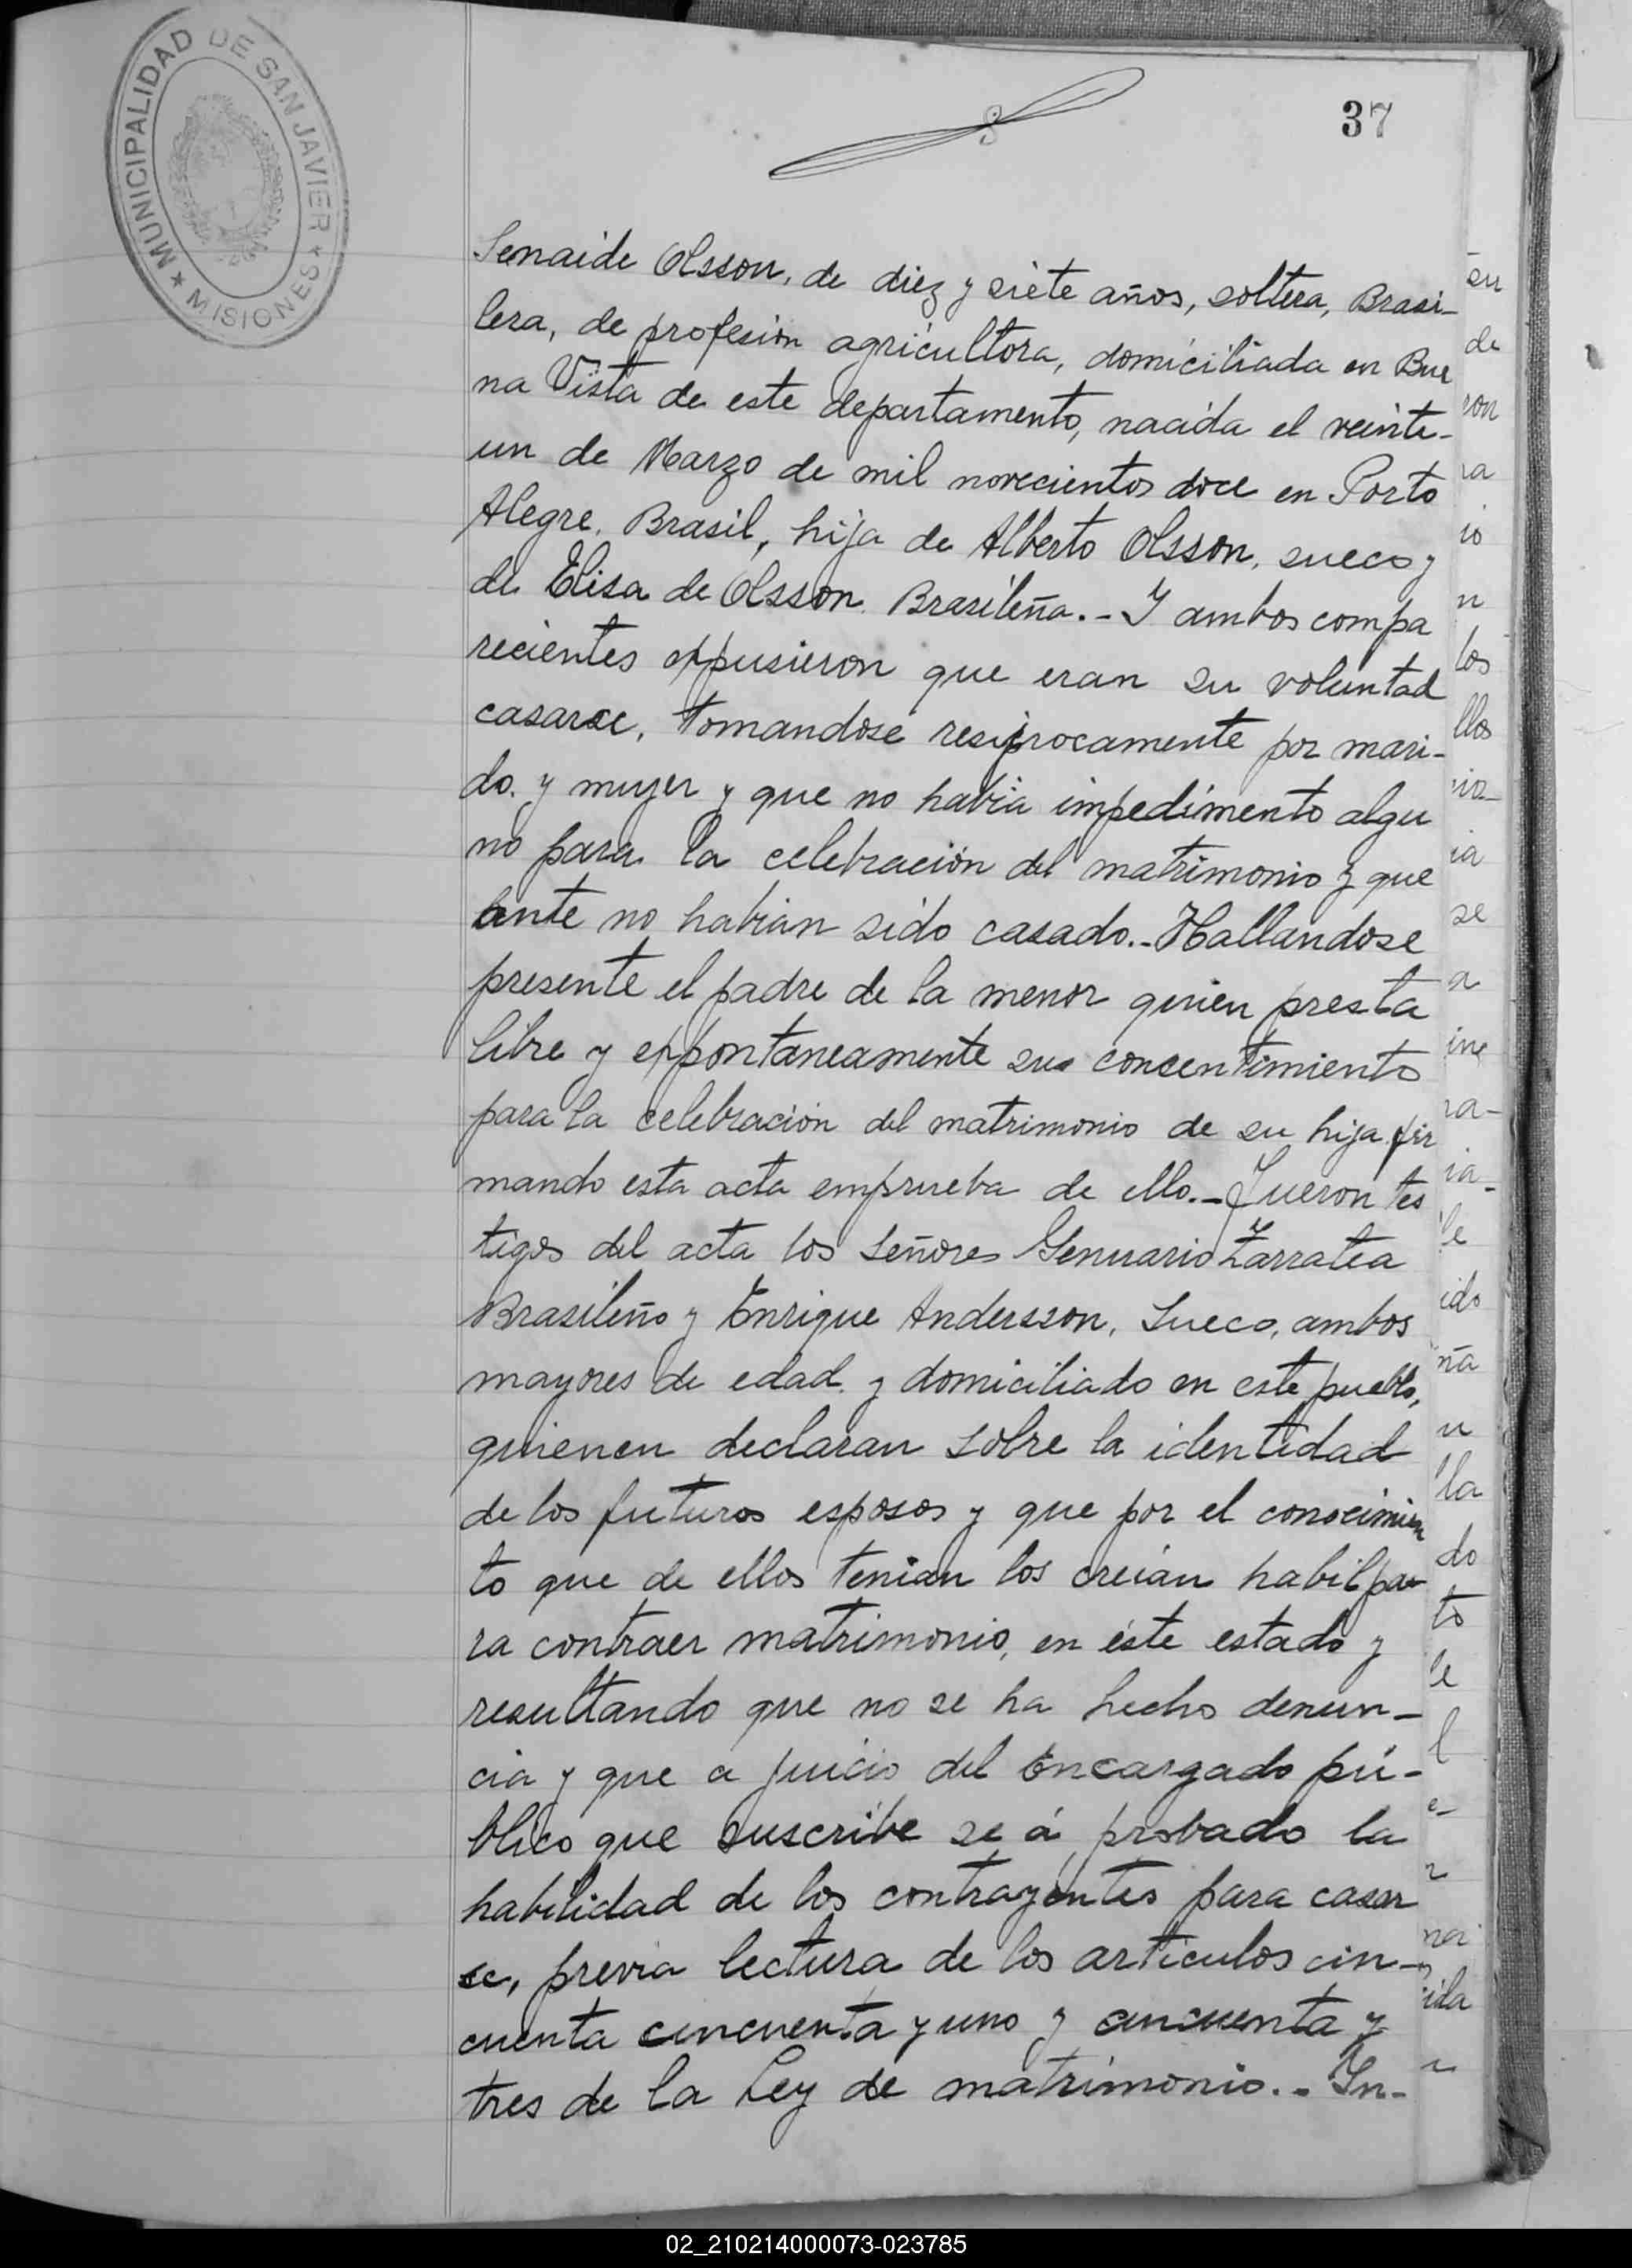 MUNICIPALIDAD DE SAN JAVIER
★ MISIONES ★
37
Senaide Olsson, de diez y siete años, soltera, Brasi-
lera, de profesión agricultora, domiciliada en Bue
na Vista de este departamento, nacida el veinte-
un de Marzo de mil novecientos doce en Porto
Alegre, Brasil, hija de Alberto Olsson, sueco y
de Elisa de Olsson, Brasileña.- Y ambos compa
recientes expusieron que eran su voluntad
casarse, tomandose resiprocamente por mari-
do. y mujer y que no había impedimento algu
no para la celebración del matrimonio y que
ante no habian sido casado.- Hallandose
presente el padre de la menor quien presta
libre y expontaneamente su concentimiento
para la celebración del matrimonio de su hija fir
mando esta acta emprueba de ello.- Fueron tes
tigos del acta los señores Genuario Zarratea
Brasileño y Enrique Andersson, Sueco, ambos
mayores de edad y domiciliado en este pueblo,
quienen declaran sobre la identidad
de los futuros esposos y que por el conocimien
to que de ellos tenian los creían habil pa-
ra contraer matrimonio, en éste estado y
resultando que no se ha hecho denun-
cia y que a juicio del Encargado pú-
blico que suscribe se á probado la
habilidad de los contrayéntes para casar
se, previa lectura de los articulos cin-
cuenta cincuenta y uno y cincuenta y
tres de la Ley de matrimonio.- In-
su
de
con
ra
io
n
los
llos
ia
se
a
ine
ra-
ia-
le
ido
ña
u
lla
do
to
le
l
e-
r
na
ida
02_210214000073-023785